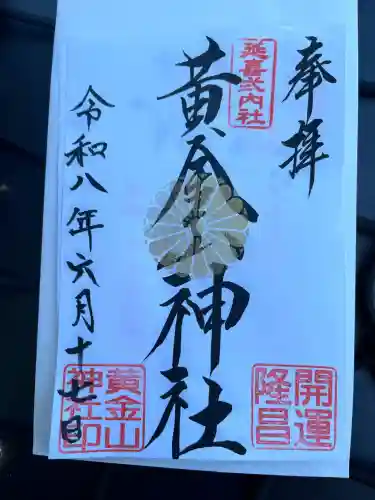 奉拝
延喜式内社
黄金山神社
令和八年六月十七日
開運
隆昌
黄金山
神社印